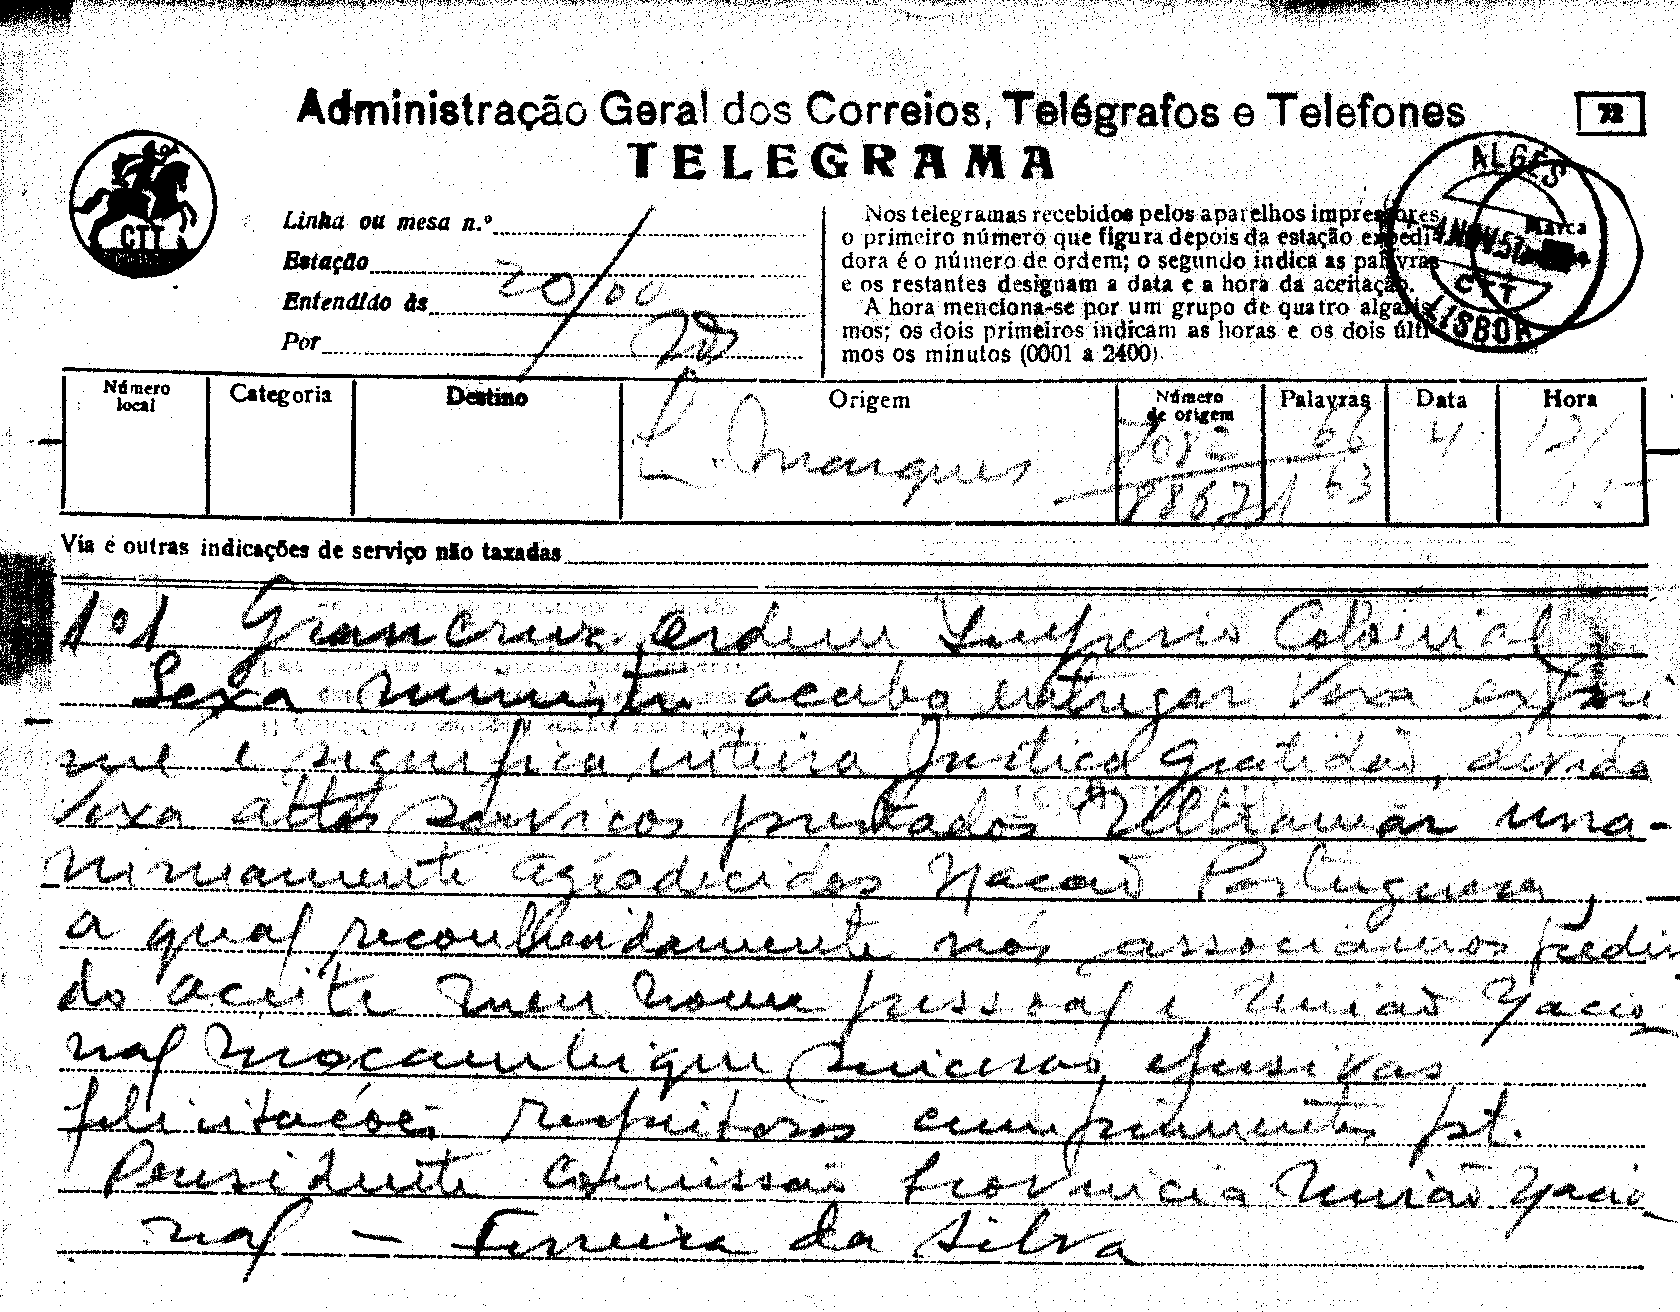 Administração Geral dos Correios, Telégrafos e Telefones
72
TELEGRAMA
CTT
ALGÉS
4 NOV 51
CTT
LISBOA
Marca
Linha ou mesa n.º
Estação
Entendido às 20/00
Por
Nos telegramas recebidos pelos aparelhos impressores
o primeiro número que figura depois da estação expedi-
dora é o número de ordem; o segundo indica as palavras
e os restantes designam a data e a hora da aceitação.
A hora menciona-se por um grupo de quatro algaris-
mos; os dois primeiros indicam as horas e os dois últi-
mos os minutos (0001 a 2400)
Número local Categoria Destino Origem Número de origem Palavras Data Hora
L. Marques 66 4
63
Via e outras indicações de serviço não taxadas
Grancruz ordem Imperio Colonial
Sexa ministro acaba entregar Vexa expri
me e significa inteira Justica gratidão devida
Vexa altos servicos prestados Ultramar una-
nimamente agradecidos Nacao Portuguesa,
a qual reconhecidamente nós associamos pedin
do aceite meu nome pessoal e União Nacio
nal Moçambique sinceras efusivas
felicitações respeitosos cumprimentos pt.
Presidente Comissão Provincia União Nacio
nal — Ferreira da Silva